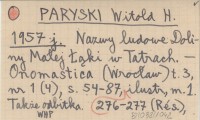 PARYSKI Witold H.
1957 j. Nazwy ludowe Doli-
ny Małej Łąki w Tatrach. —
Onomastica (Wrocław) t. 3,
nr 1 (4), s. 54-87, ilustr., m. 1.
Także odbitka. 276-277 (Rés.),
WHP